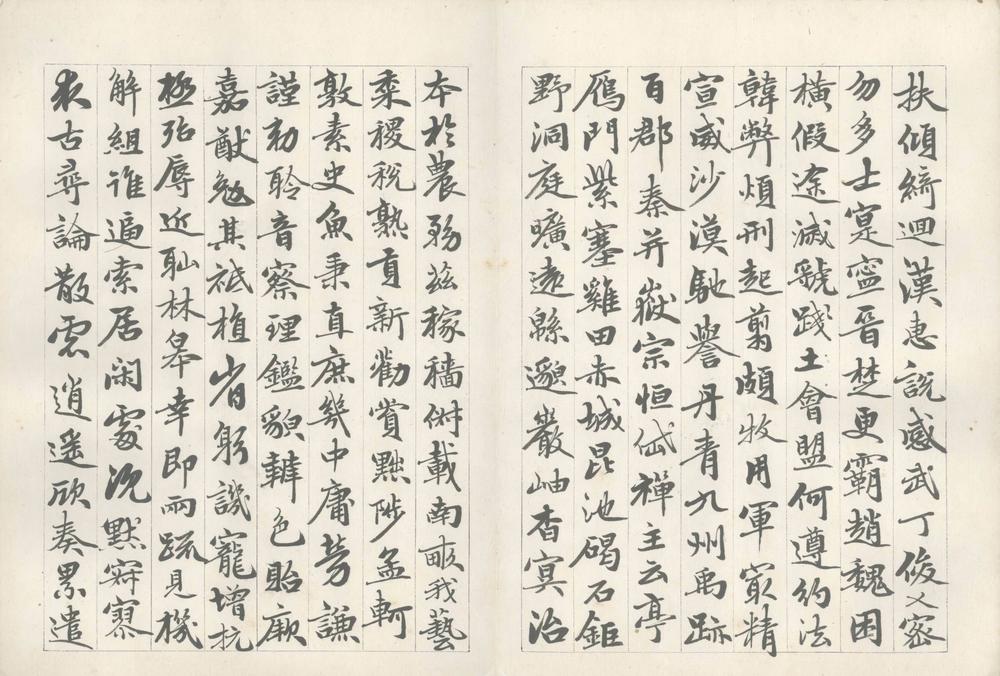 扶傾綺迴漢惠説感武丁俊乂密
勿多士寔寧晉楚更霸趙魏困
橫假途滅虢踐土會盟何遵約法
韓弊煩刑起翦頗牧用軍最精
宣威沙漠馳譽丹青九州禹跡
百郡秦并嶽宗恒岱禪主云亭
鴈門紫塞雞田赤城昆池碣石鉅
野洞庭曠遠緜邈巖岫杳冥治
本於農務茲稼穡俶載南畝我藝
黍稷稅熟貢新勸賞黜陟孟軻
敦素史魚秉直庶幾中庸勞謙
謹勑聆音察理鑑貌辯色貽厥
嘉猷勉其祗植省躬譏寵增抗
極殆辱近恥林皋幸即兩疏見機
解組誰逼索居閑處沉默寂寥
求古尋論散慮逍遙欣奏累遣